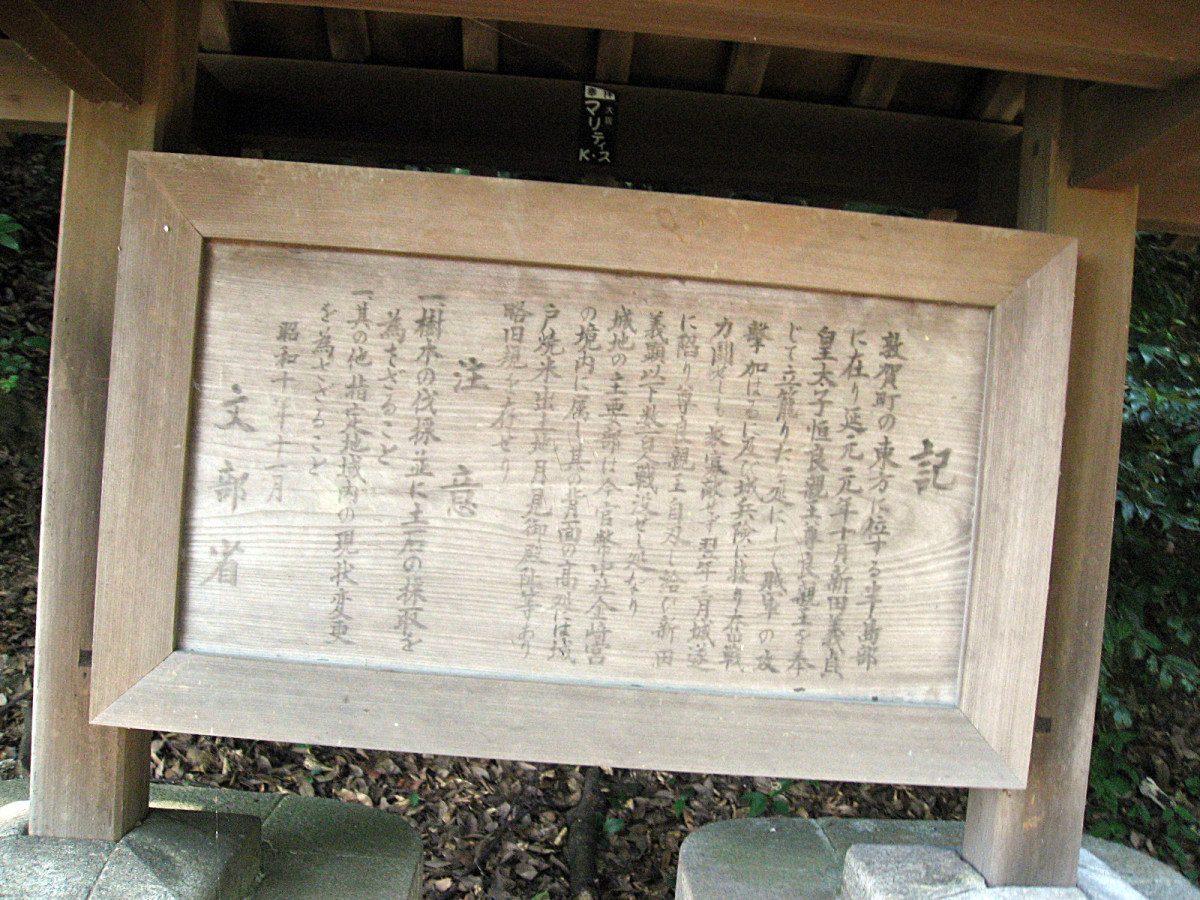 記
敦賀町の東方に位する半島部
に在り延元元年十月新田義貞
皇太子恒良親王尊良親王を奉
じて立籠りたる処にして賊軍の攻
撃加はるに及び城兵険に拠り奮戦
力闘せしも衆寡敵せず翌年三月城遂
に陥り尊良親王自尽し給ひ新田
義顕以下数百人戦没せし処なり
城地の主要部は今官幣中社金崎宮
の境内に属し其の背面の高処には城
戸焼米出土地月見御殿阯等あり
略旧規を存せり
注意
一樹木の伐採並に土石の採取を
為さざること
一其の他指定地域内の現状変更
を為さざること
昭和十年十一月
文部省
マリティス
K・